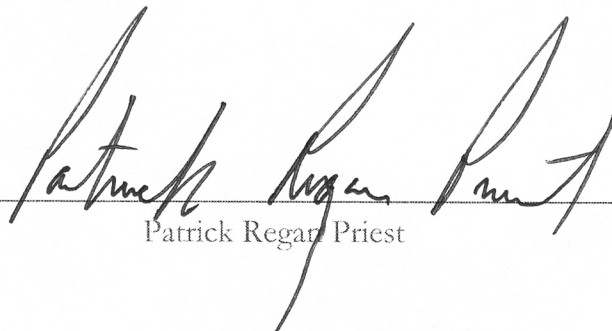 Patrick Regan Priest
Patrick Regan Priest